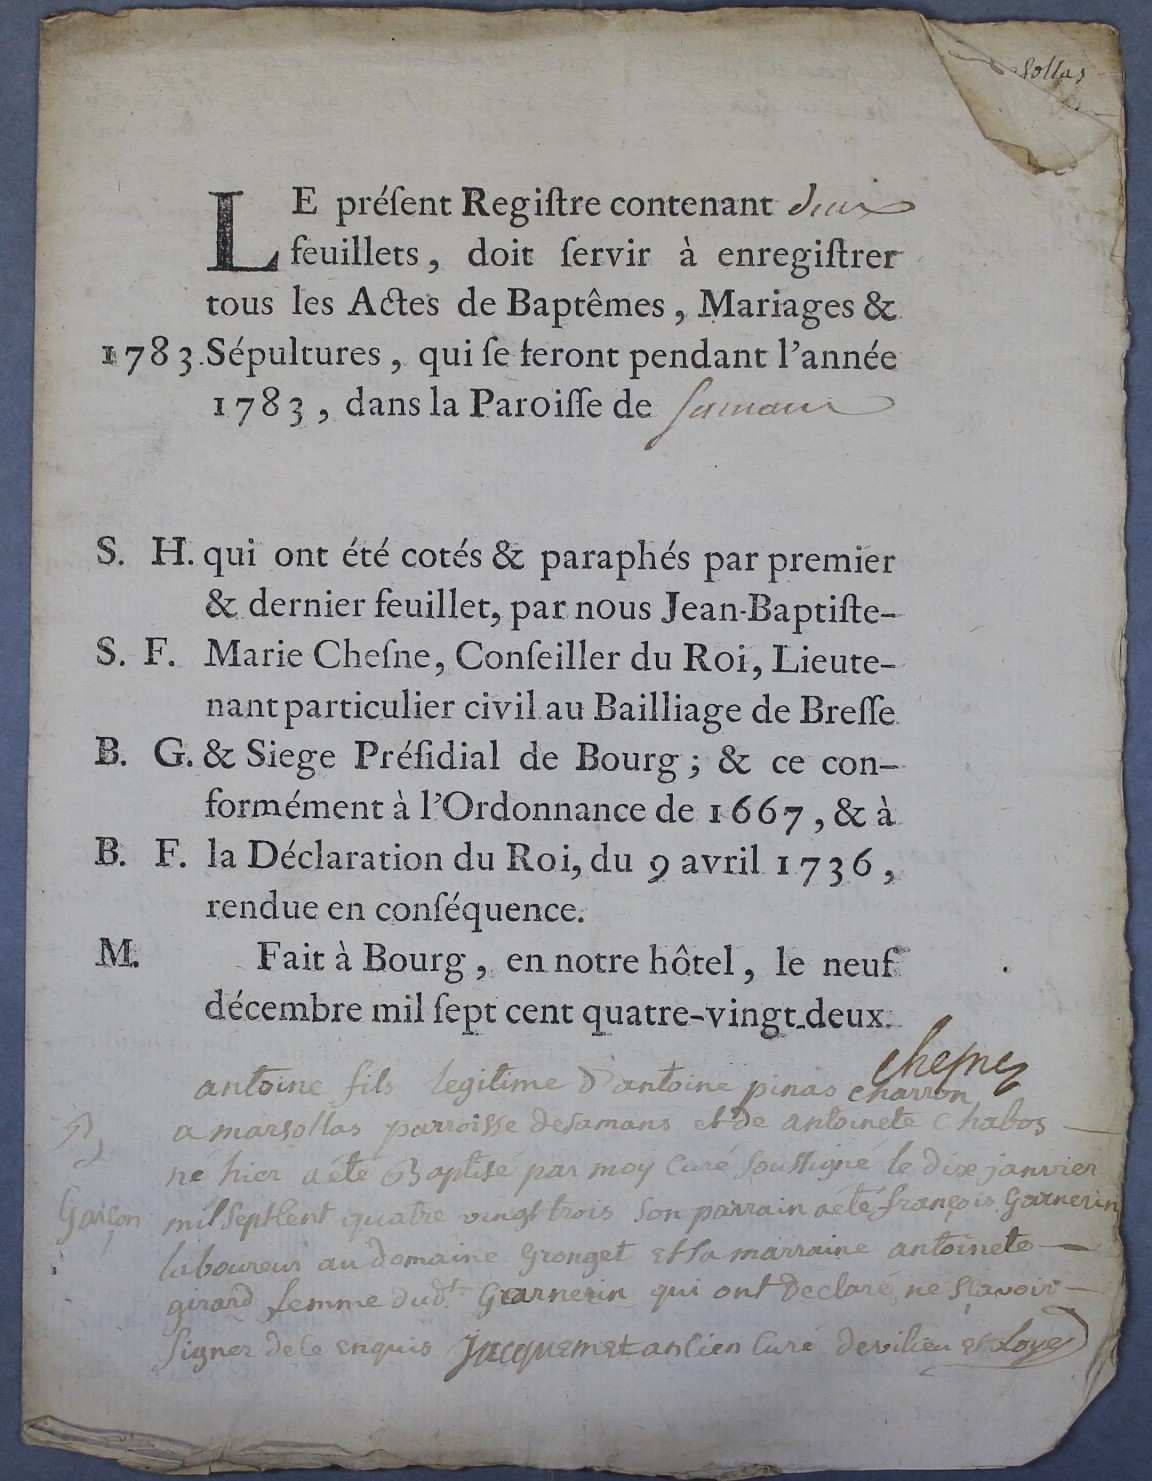 sollas
LE préſent Regiſtre contenant deux
feuillets, doit ſervir à enregiſtrer
tous les Actes de Baptêmes, Mariages &
1783. Sépultures, qui ſe feront pendant l'année
1783, dans la Paroiſſe de Samans
S. H. qui ont été cotés & paraphés par premier
& dernier feuillet, par nous Jean-Baptiſte-
S. F. Marie Cheſne, Conſeiller du Roi, Lieute-
nant particulier civil au Bailliage de Breſſe
B. G. & Siege Préſidial de Bourg; & ce con-
formément à l'Ordonnance de 1667, & à
B. F. la Déclaration du Roi, du 9 avril 1736,
rendue en conſéquence.
M. Fait à Bourg, en notre hôtel, le neuf
décembre mil ſept cent quatre-vingt-deux.
Chesne
antoine fils legitime d'antoine pinas charron
a marsollas parroisse desamans et de antoinete Chabos
né hier aété Baptisé par moy Curé Soussigné le dix janvier
Garçon mil Septcent quatre vingt trois Son parrain aété françois Garnerin
laboureur au domaine Gronget et Sa marraine antoinete
girard femme dudt Garnerin qui ont declaré ne Sçavoir
Signer de ce enquis Jacquemet ancien Curé devilieu et Loye